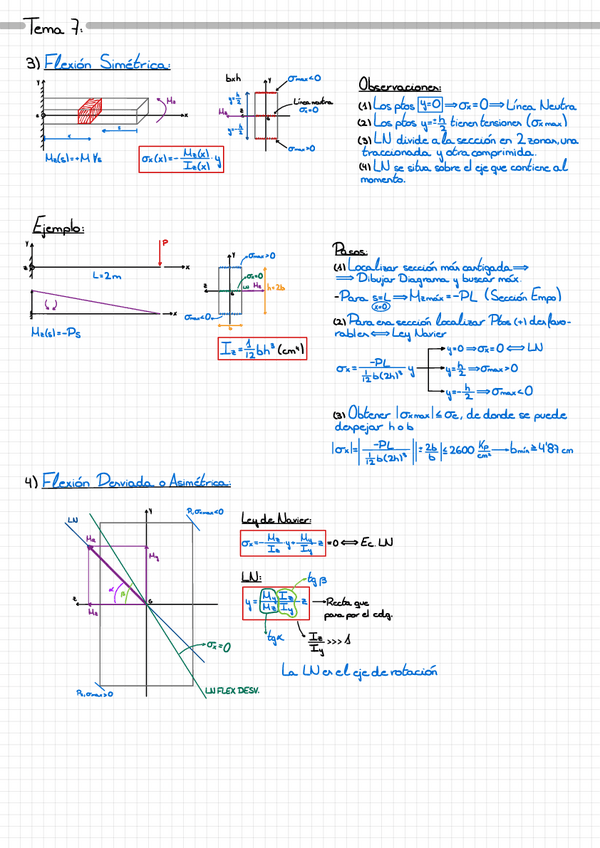 Tema 7:
3) Flexión Simétrica:
Y
Mz
x
z
G
s
Mz(s)=+M ∀s
σx(x)=-Mz(x)/Iz(x)·y
bxh
y=h/2
y=-h/2
Y
σmax<0
Línea neutra
σx=0
Mz
G
σmax>0
Observaciones:
(1) Los ptos y=0 ⟹ σx=0 ⟹ Línea Neutra
(2) Los ptos y=±h/2 tienen tensiones (σx max)
(3) LN divide a la sección en 2 zonas, una
traccionada y otra comprimida.
(4) LN se situa sobre el eje que contiene al
momento.
Ejemplo:
Y
P
z
x
L=2m
x
Mz(s)=-Ps
Y
σmax>0
σx=0
z
G
LN
Mz
h=2b
σmax<0
b
Iz=1/12 bh³ (cm⁴)
Pasos:
(1) Localizar sección más castigada ⟹
⟹ Dibujar Diagrama y buscar máx.
-Para s=L ⟹ Mzmáx=-PL (Sección Empo)
(x=0)
(2) Para esa sección localizar Ptos (+) desfavo-
rables ⟺ Ley Navier
σx=-PL/(1/12 b(2h)³) y
y=0 ⟹ σx=0 ⟺ LN
y=h/2 ⟹ σmax>0
y=-h/2 ⟹ σmax<0
(3) Obtener |σxmax|≤σe, de donde se puede
despejar h o b
|σx|=|-PL/(1/12 b(2h)³)|=|2b/b|≤2600 Kp/cm² → bmin≥4'87 cm
4) Flexión Desviada o Asimétrica:
LN
Y
P, σmax<0
M
My
α
β
z
Mz
G
σx=0
P, σmax>0
LN FLEX DESV.
Ley de Navier:
σx=-Mz/Iz·y=My/Iy·z=0 ⟺ Ec. LN
LN:
tgβ
y=My/Mz·Iz/Iy·z → Recta que
pasa por el cdg.
tgα
Iz/Iy >>> 1
La LN es el eje de rotación